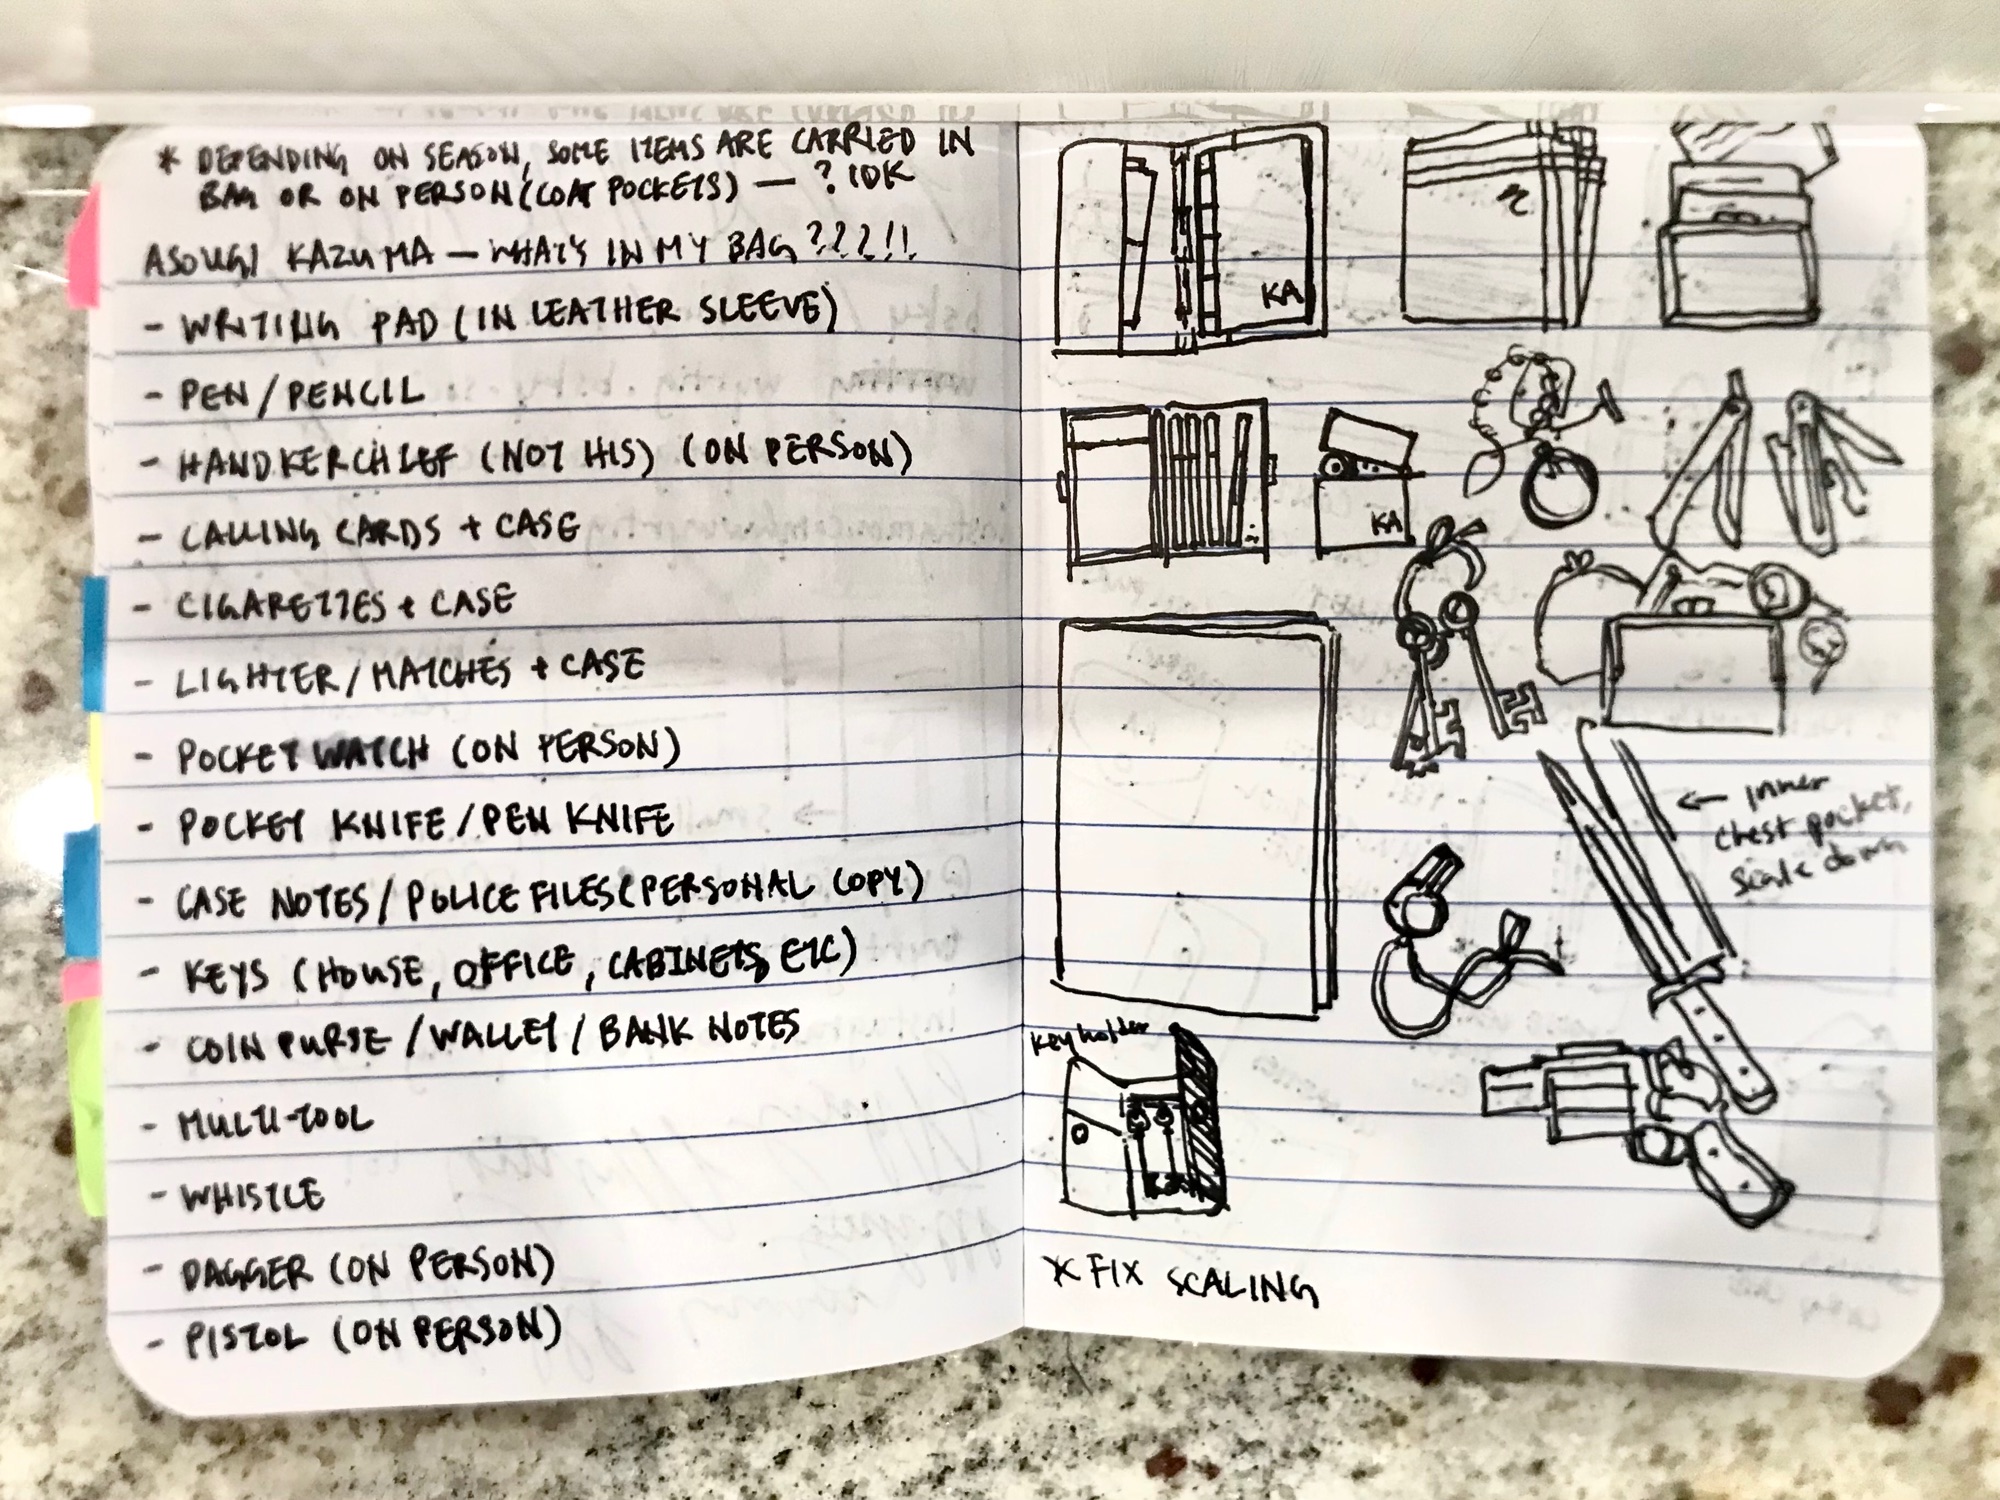 * DEPENDING ON SEASON, SOME ITEMS ARE CARRIED IN
BAG OR ON PERSON (COAT POCKETS) — ? IDK
ASOUGI KAZUMA — WHAT'S IN MY BAG ???!!
- WRITING PAD (IN LEATHER SLEEVE)
- PEN / PENCIL
- HANDKERCHIEF (NOT HIS) (ON PERSON)
- CALLING CARDS + CASE
- CIGARETTES + CASE
- LIGHTER / MATCHES + CASE
- POCKET WATCH (ON PERSON)
- POCKET KNIFE / PEN KNIFE
- CASE NOTES / POLICE FILES (PERSONAL COPY)
- KEYS (HOUSE, OFFICE, CABINETS, ETC)
- COIN PURSE / WALLET / BANK NOTES
- MULTI-TOOL
- WHISTLE
- DAGGER (ON PERSON)
- PISTOL (ON PERSON)
KA
KA
← inner
chest pocket,
scale down
key holder
* FIX SCALING